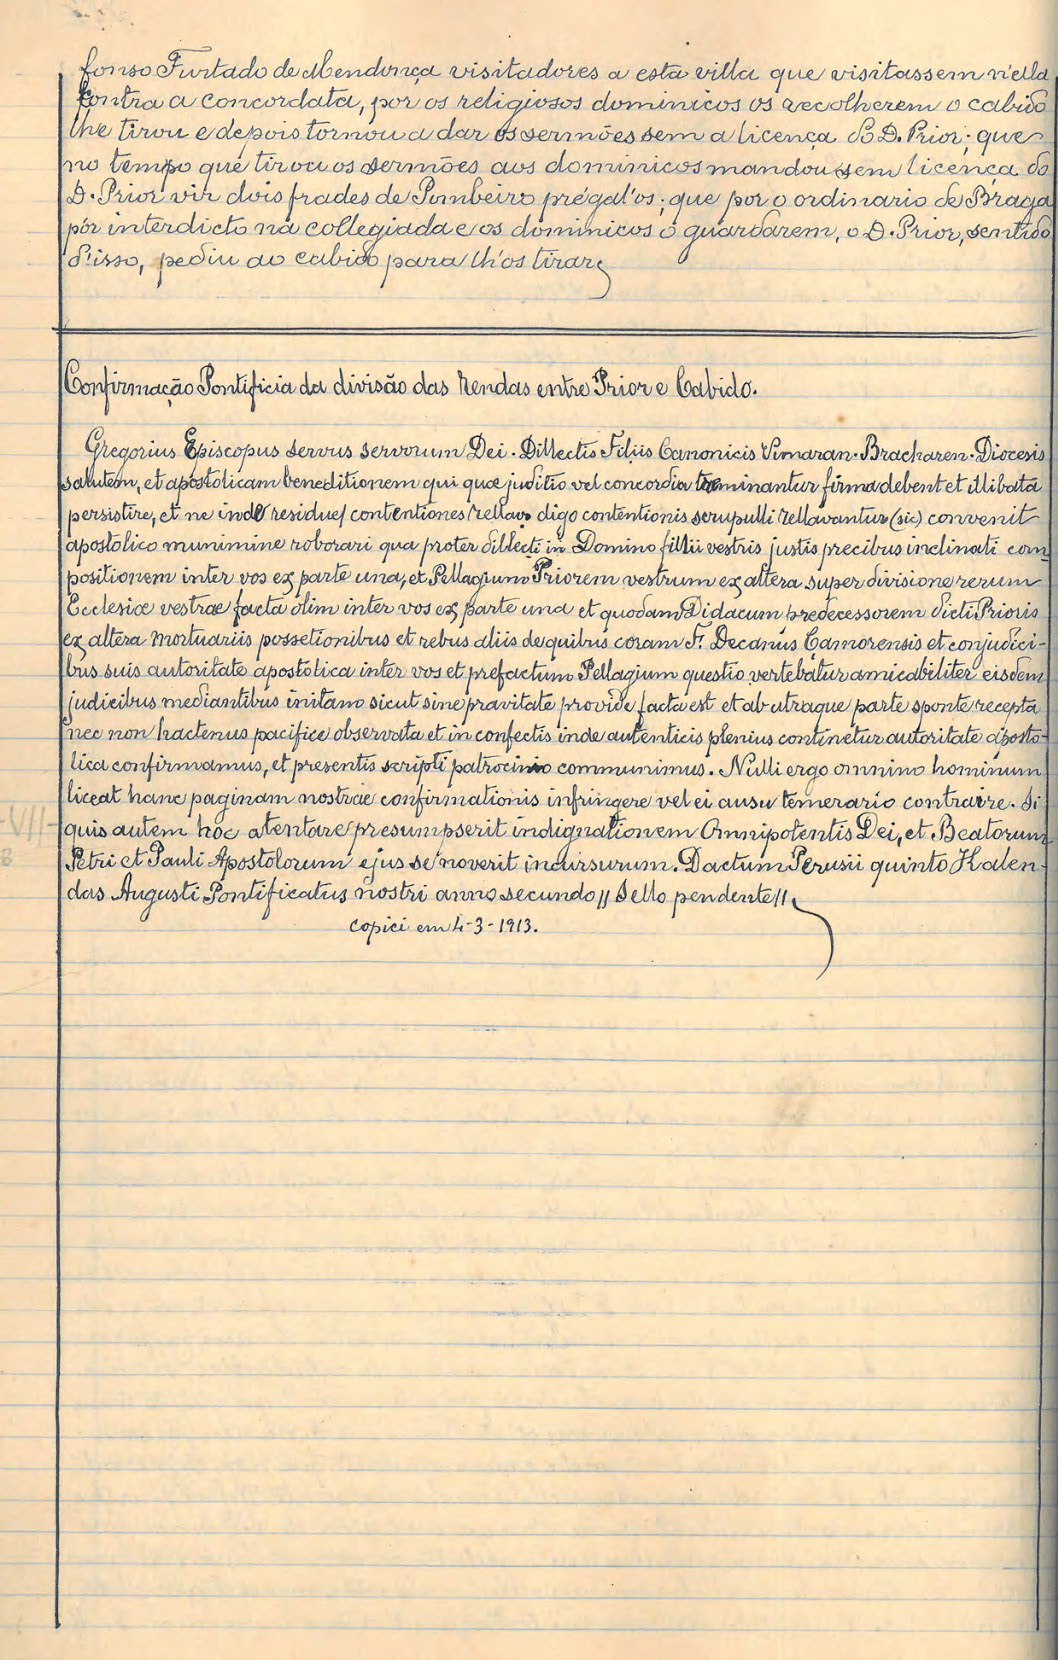 fonso Furtado de Mendonça visitadores a esta villa que visitassem n'ella
contra a concordata, por os religiosos dominicos os recolherem o cabido
lhe tirou e depois tornou a dar os sermões sem a licença do D. Prior; que
no tempo que tirou os sermões aos dominicos mandou sem licença do
D. Prior vir dois frades de Pombeiro prégal'os; que por o ordinario de Braga
pôr interdicto na collegiada e os dominicos o guardarem, o D. Prior, sentido
d'isso, pediu ao cabido para lh'os tirar
Confirmação Pontificia da divisão das rendas entre Prior e Cabido.
Gregorius Episcopus servus servorum Dei. Dillectis Filiis Canonicis Vimaran. Bracharen. Diocesis
salutem, et apostolicam beneditionem qui quæ juditio vel concordia terminantur firma debent et illibata
persistire, et ne inde residue contentiones rellavo digo contentionis scrupulli rellavantur (sic) convenit
apostolico munimine roborari qua proter dillecti in Domino fillii vestris justis precibus inclinati com-
positionem inter vos ex parte una, et Pellagium Priorem vestrum ex altera super divisione rerum
Ecclesiæ vestrae facta olim inter vos ex parte una et quodam Didacum predecessorem dicti Prioris
ex altera mortuariis possetionibus et rebus aliis de quibus coram F. Decanus Camorensis et conjudici-
bus suis autoritate apostolica inter vos et prefactum Pellagium questio vertebatur amicabiliter eisdem
judicibus mediantibus initam sicut sine pravitate provide facta est et ab utraque parte sponte recepta
nec non hactenus pacifice observata et in confectis inde autenticis plenius continetur autoritate aposto-
lica confirmamus, et presentis scripti patrocinio communimus. Nulli ergo omnino hominum
liceat hanc paginam nostrae confirmationis infringere vel ei ausu temerario contraire. Si
quis autem hoc atentare presumpserit indignationem Omnipotentis Dei, et Beatorum
Petri et Pauli Apostolorum ejus se noverit incursurum. Dactum Perusii quinto Kalen-
das Augusti Pontificatus nostri anno secundo // Sello pendente //
Copiei em 4-3-1913.